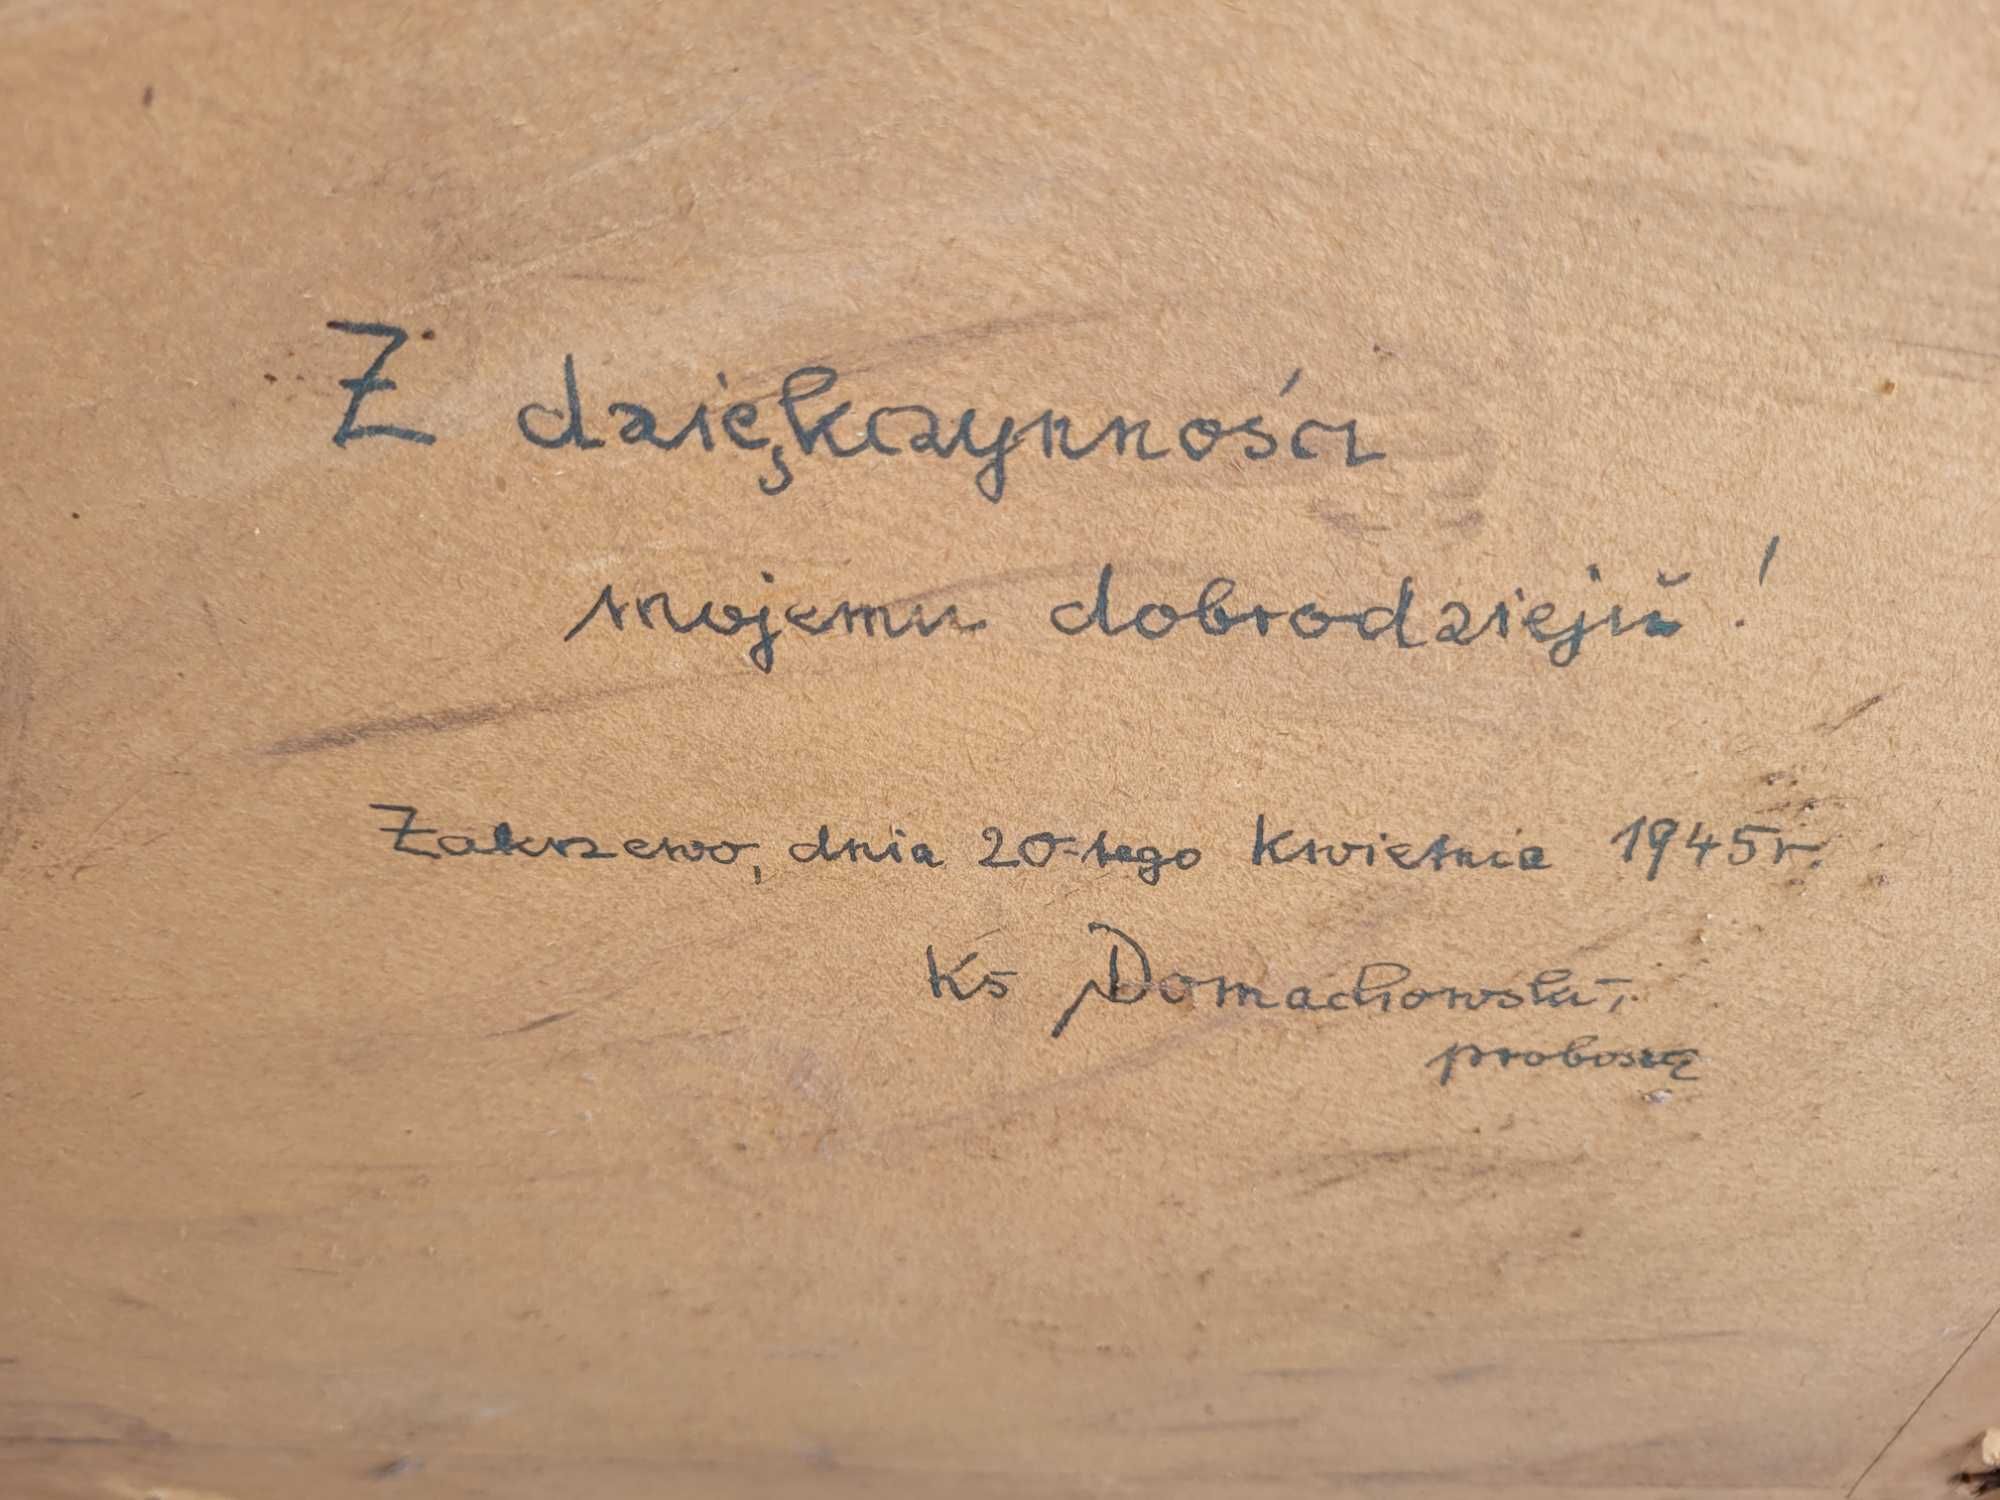 Z dziękczynności
mojemu dobrodzieju!
Zakrzewo, dnia 20-tego kwietnia 1945 r.
Ks Domachowski,
proboszcz